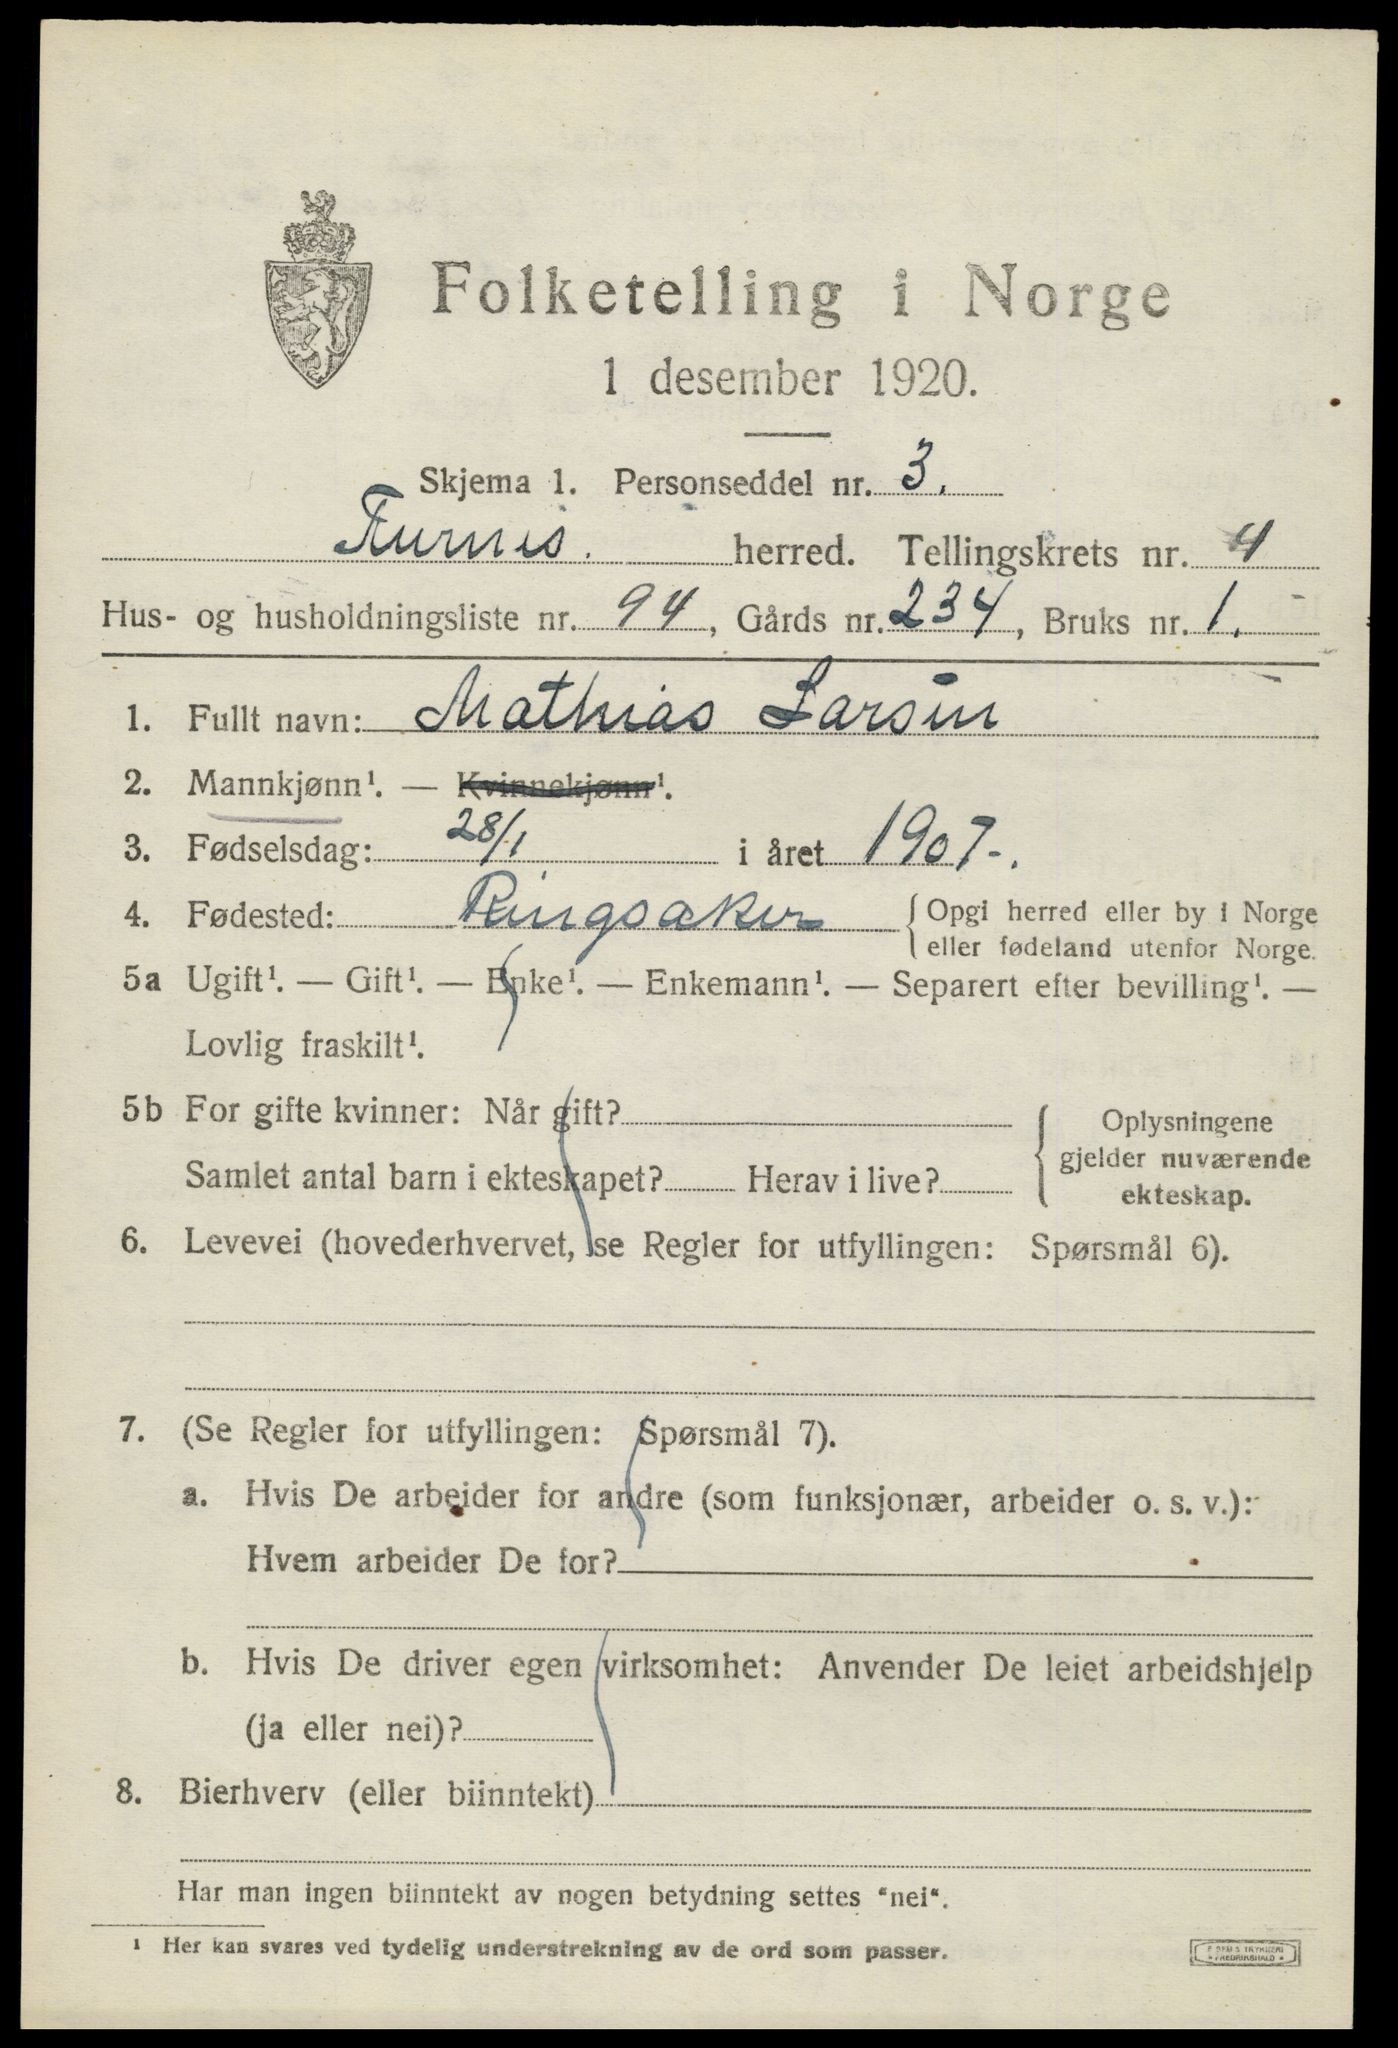 Folketelling i Norge
1 desember 1920.
Skjema 1. Personseddel nr. 3.
Furnes. herred. Tellingskrets nr. 4
Hus- og husholdningsliste nr. 94, Gårds nr. 234, Bruks nr. 1.
1. Fullt navn: Mathias Larsen
2. Mannkjønn¹. — Kvinnekjønn¹.
3. Fødselsdag: 28/1 i året 1907-.
4. Fødested: Ringsaker { Opgi herred eller by i Norge
eller fødeland utenfor Norge.
5a Ugift¹. — Gift¹. — Enke¹. — Enkemann¹. — Separert efter bevilling¹. —
Lovlig fraskilt¹.
5b For gifte kvinner: Når gift? { Oplysningene
gjelder nuværende
Samlet antal barn i ekteskapet? Herav i live? ekteskap.
6. Levevei (hovederhvervet, se Regler for utfyllingen: Spørsmål 6).
7. (Se Regler for utfyllingen: Spørsmål 7).
a. Hvis De arbeider for andre (som funksjonær, arbeider o. s. v.):
Hvem arbeider De for?
b. Hvis De driver egen virksomhet: Anvender De leiet arbeidshjelp
(ja eller nei)?
8. Bierhverv (eller biinntekt)
Har man ingen biinntekt av nogen betydning settes "nei".
¹ Her kan svares ved tydelig understrekning av de ord som passer.